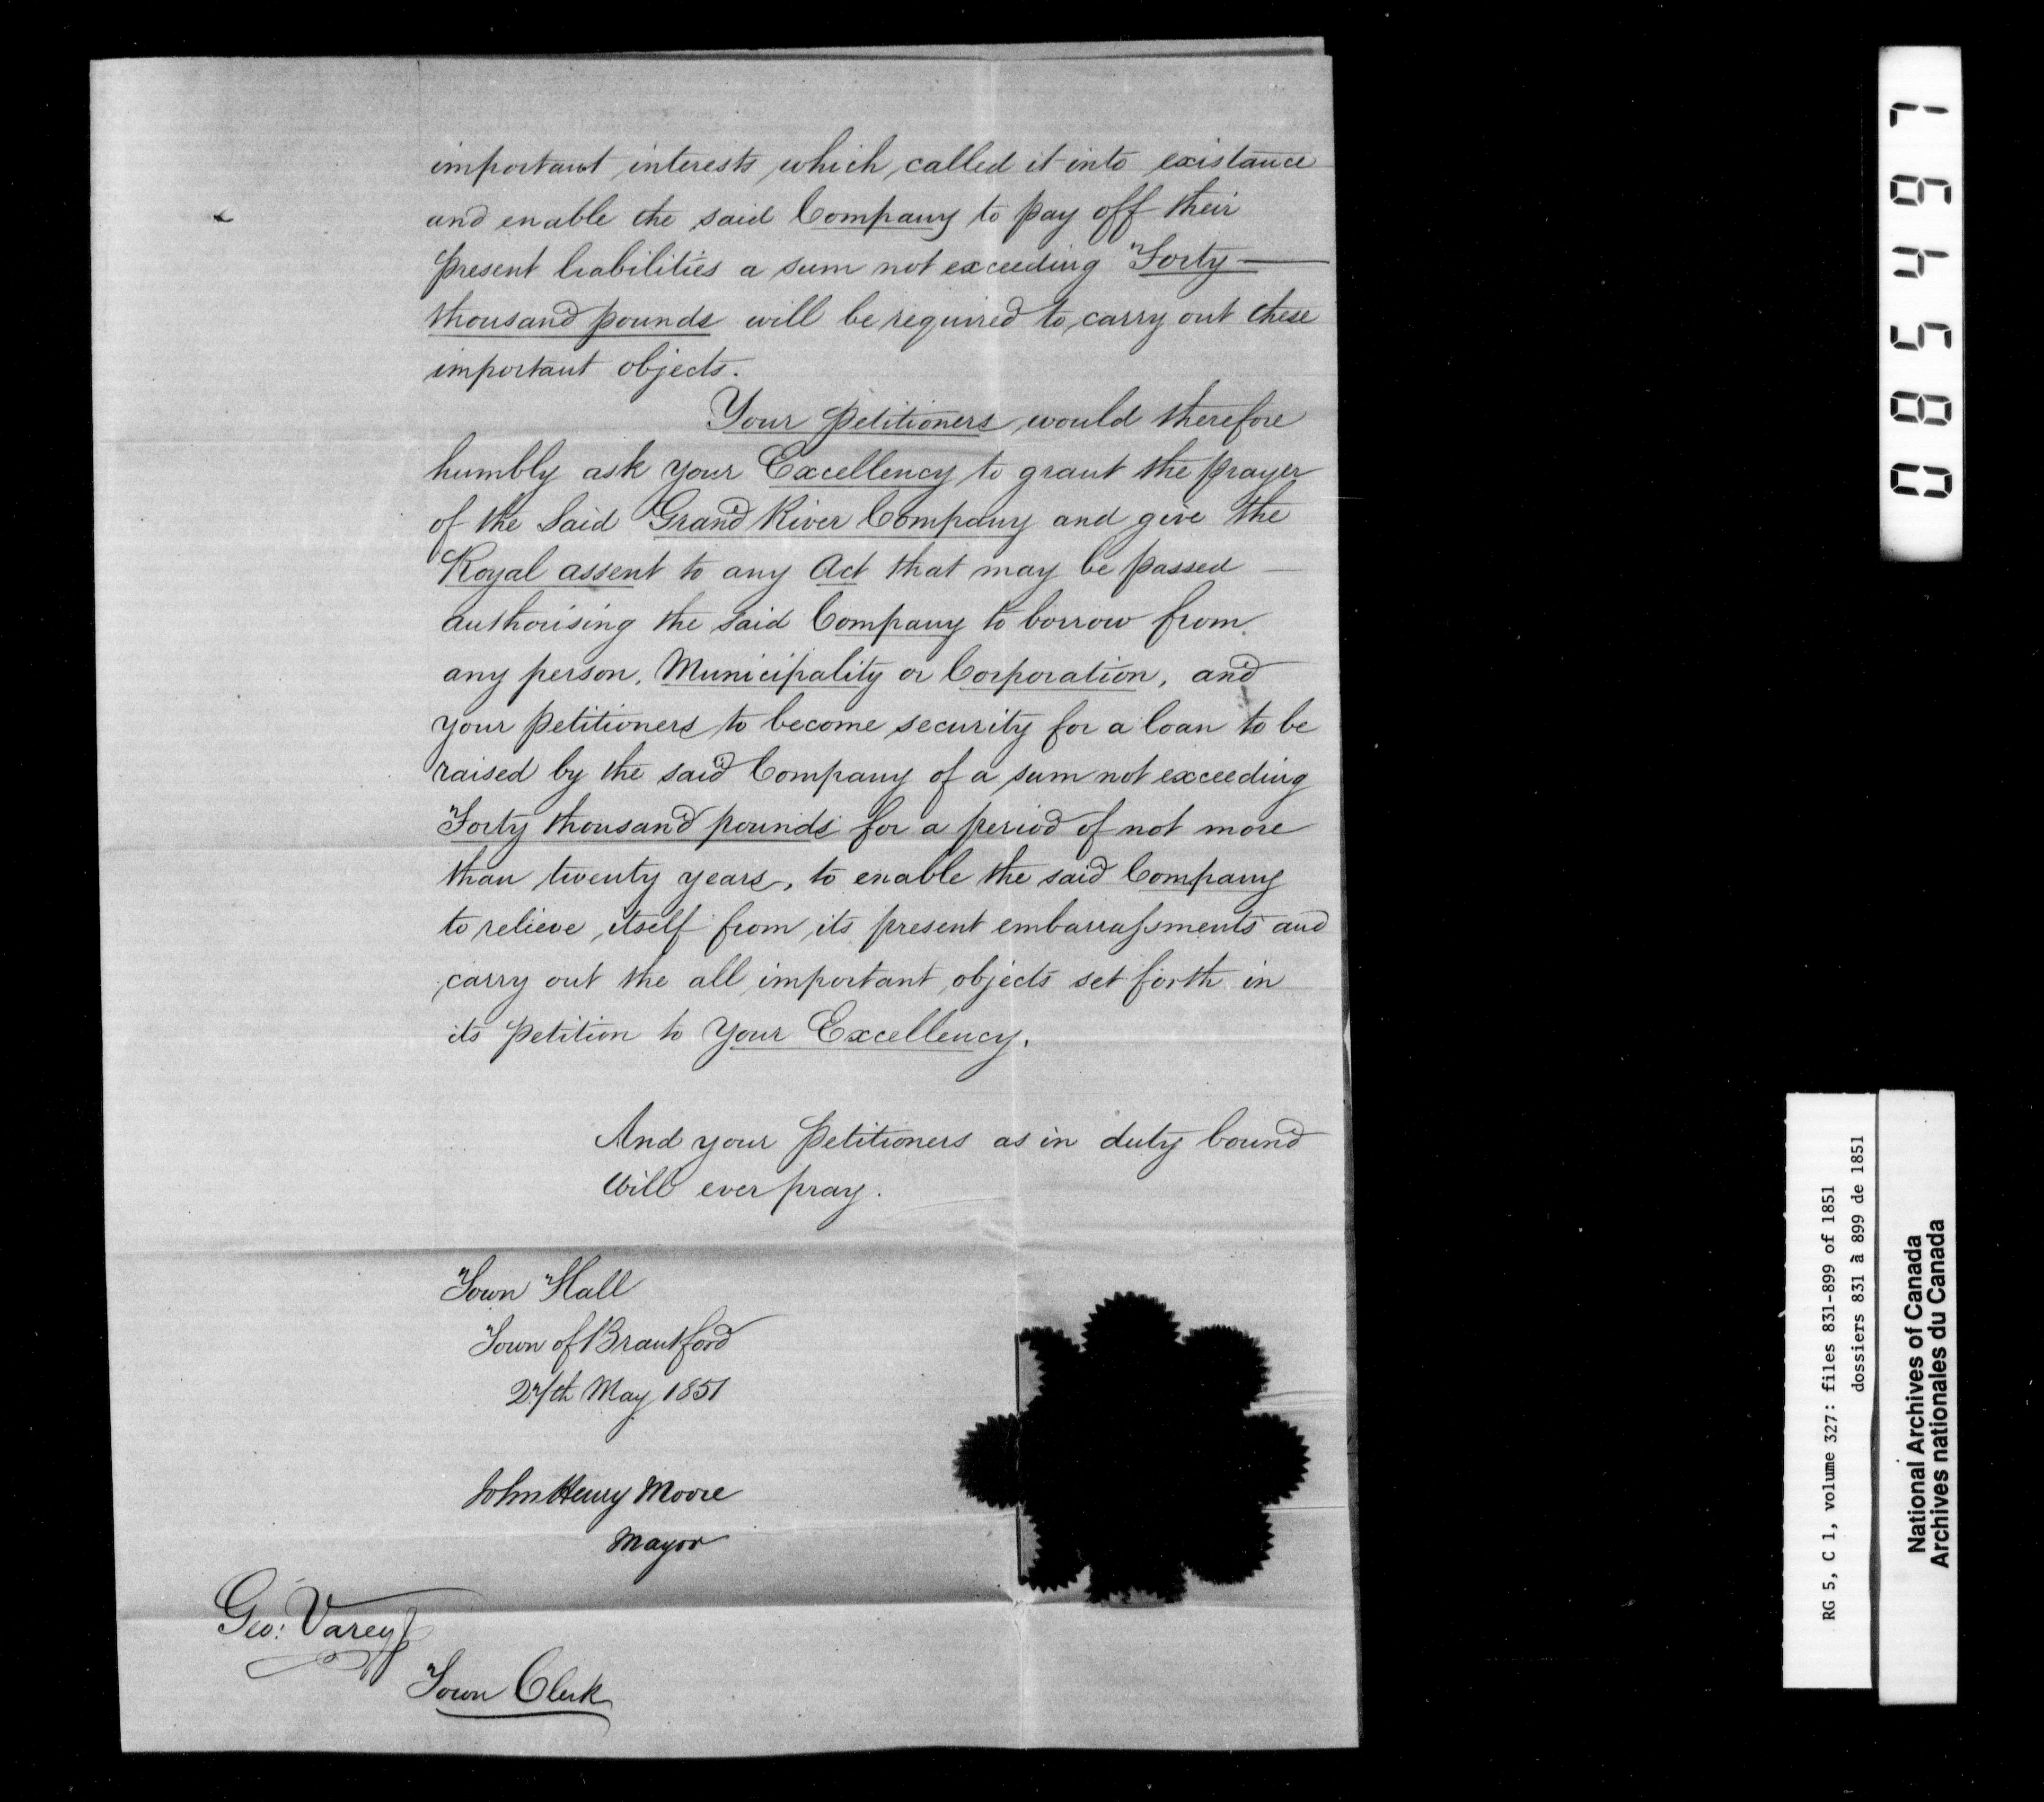 important interests which called it into existance
and enable the said Company to pay off their
present liabilities a sum not exceeding Forty —
thousand pounds will be required to carry out these
important objects.
Your Petitioners would therefore
humbly ask your Excellency to grant the prayer
of the Said Grand River Company and give the
Royal assent to any Act that may be passed —
authorising the said Company to borrow from
any person, Municipality or Corporation, and
your petitioners to become security for a loan to be
raised by the said Company of a sum not exceeding
Forty thousand pounds for a period of not more
than twenty years, to enable the said Company
to relieve itself from its present embarraſsments and
carry out the all important objects set forth in
its Petition to Your Excellency.
And your Petitioners as in duty bound
Will ever pray.
Town Hall
Town of Brantford
27th May 1851
John Henry Moore
Mayor
Geo: Varey
Town Clerk
085497
RG 5, C 1, volume 327: files 831-899 of 1851
dossiers 831 à 899 de 1851
National Archives of Canada
Archives nationales du Canada